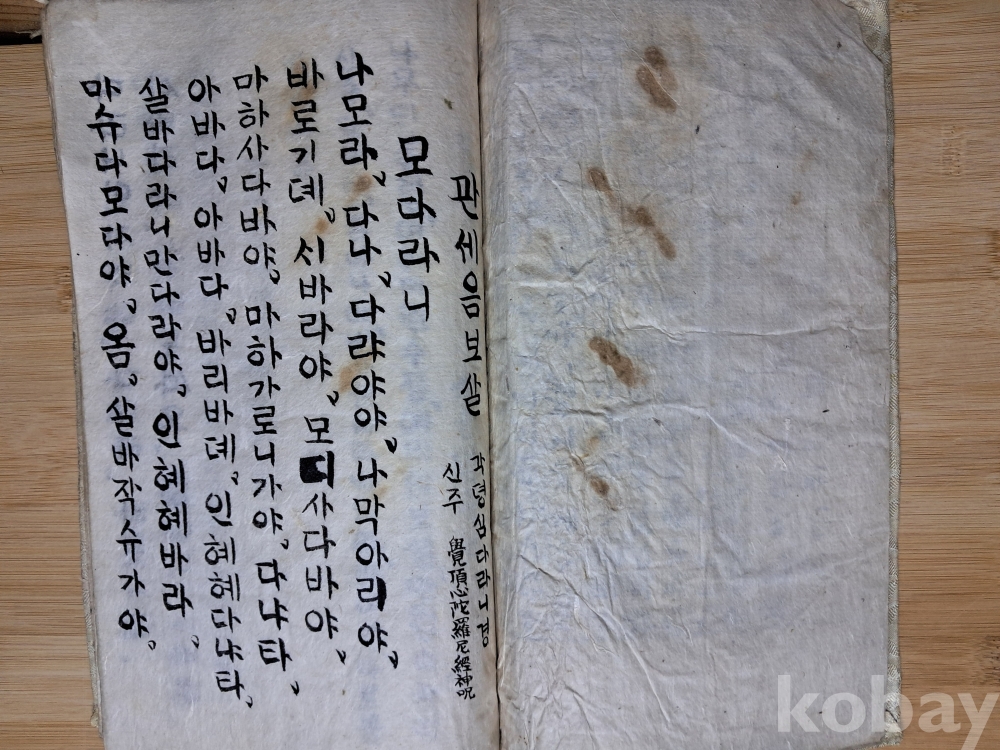 관세음보살
각뎡심다라니경
신주 覺頂心陀羅尼經神呪
모다라니
나모라, 다나, 다랴야야, 나막아리야,
바로기뎨, 시바라야, 모디사다바야,
마하사다바야, 마하가로니가야, 다냐타,
아바다, 아바다, 바리바뎨, 인혜혜다냐타,
살바다라니만다라야, 인혜혜바라,
마슈다모다야, 옴, 살바작슈가야,
kobay